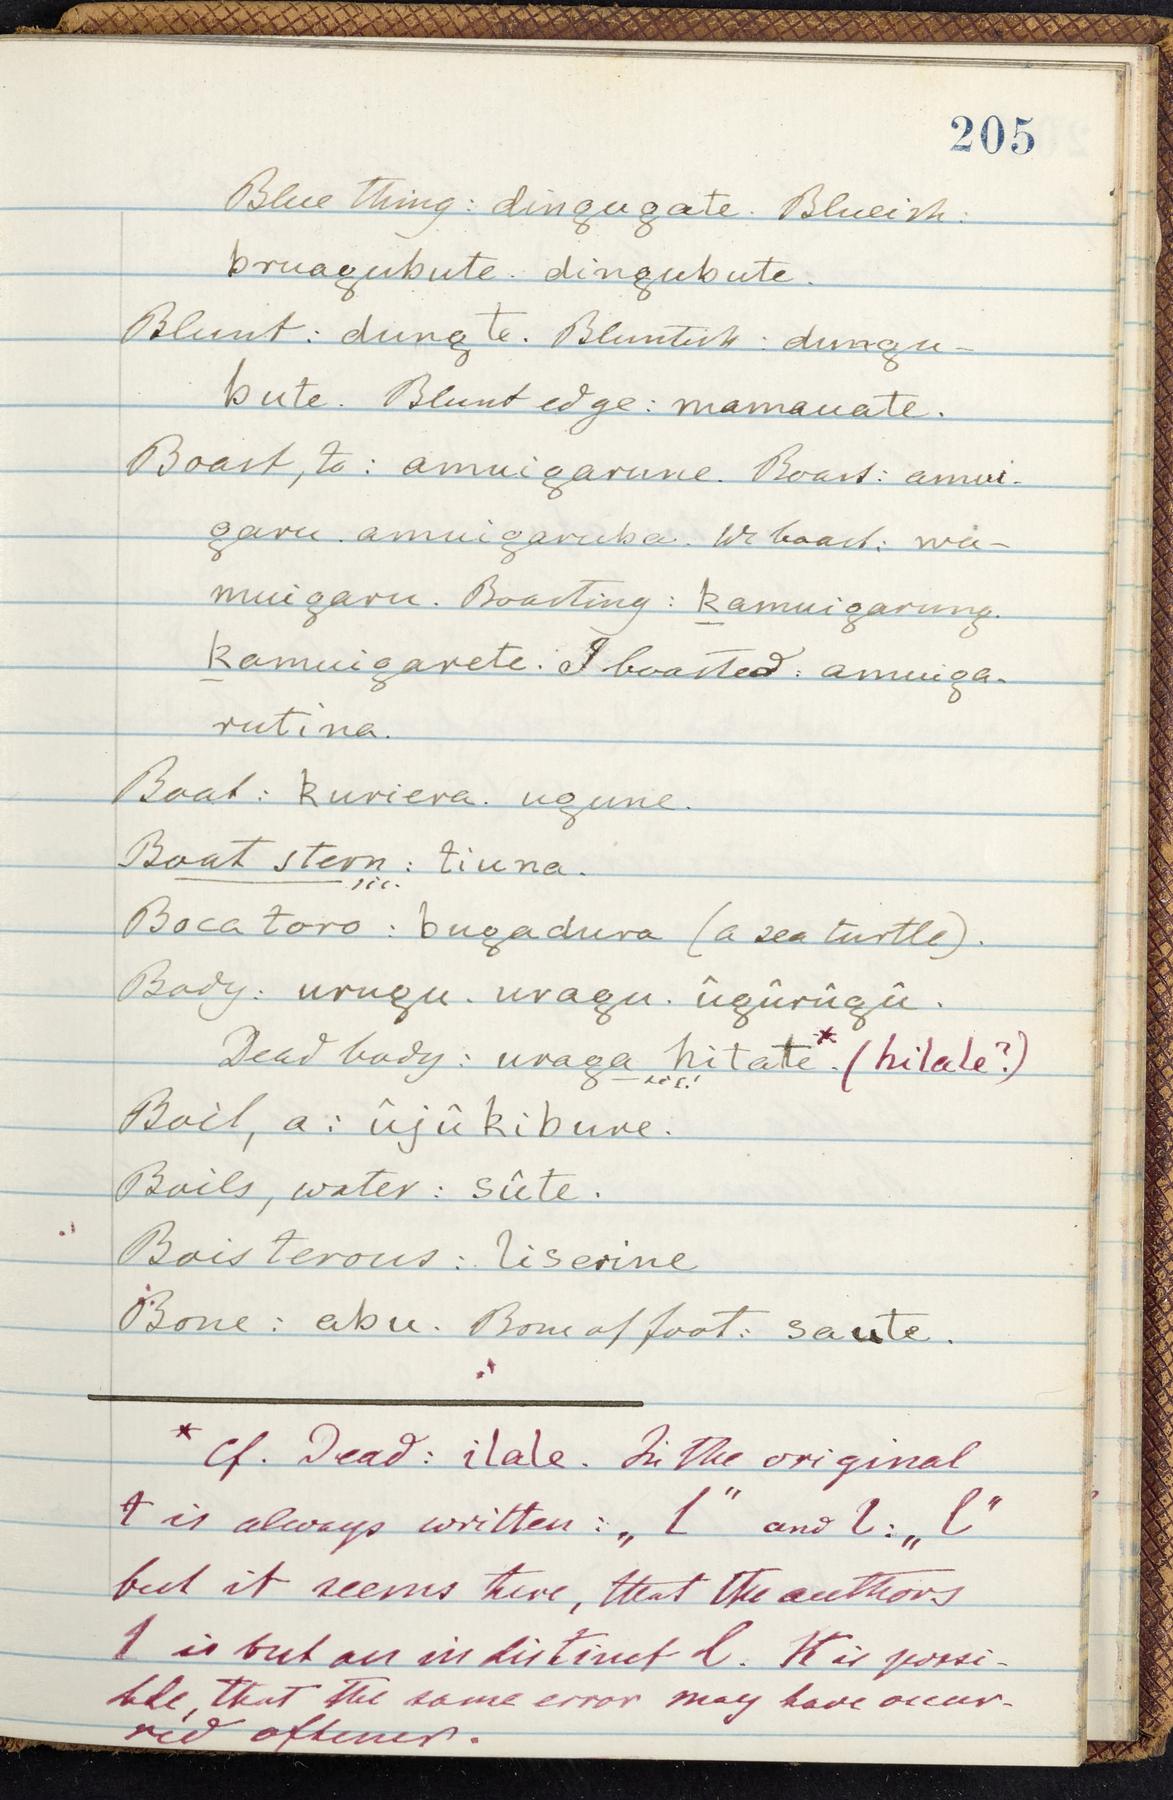 205
Blue thing: dingugate. Blueish:
bruagubute. dingubute.
Blunt: dungte. Bluntish: dungu-
bute. Blunt edge: mamauate.
Boast, to: amuigarune. Boast: amui-
garu. amuigaruba. We boast: wa-
muigaru. Boasting: kamuigarung.
kamuigarete. I boasted: amuiga-
rutina.
Boat: kuriera. ugune.
Boat stern: tiuna.
sic.
Boca toro: bugadura (a sea turtle).
Body: urugu. uragu. ûgûrûgû.
Dead body: uraga hitate.* (hilale?)
sic!
Boil, a: ûjûkibure.
Boils, water: sûte.
Boisterous: liserine
Bone: abu. Bone of foot: saute.
* Cf. Dead: ilale. In the original
t is always written: „ t " and l: „ l "
but it seems here, that the authors
t is but an indistinct l. It is possi-
ble, that the same error may have occur-
red oftener.